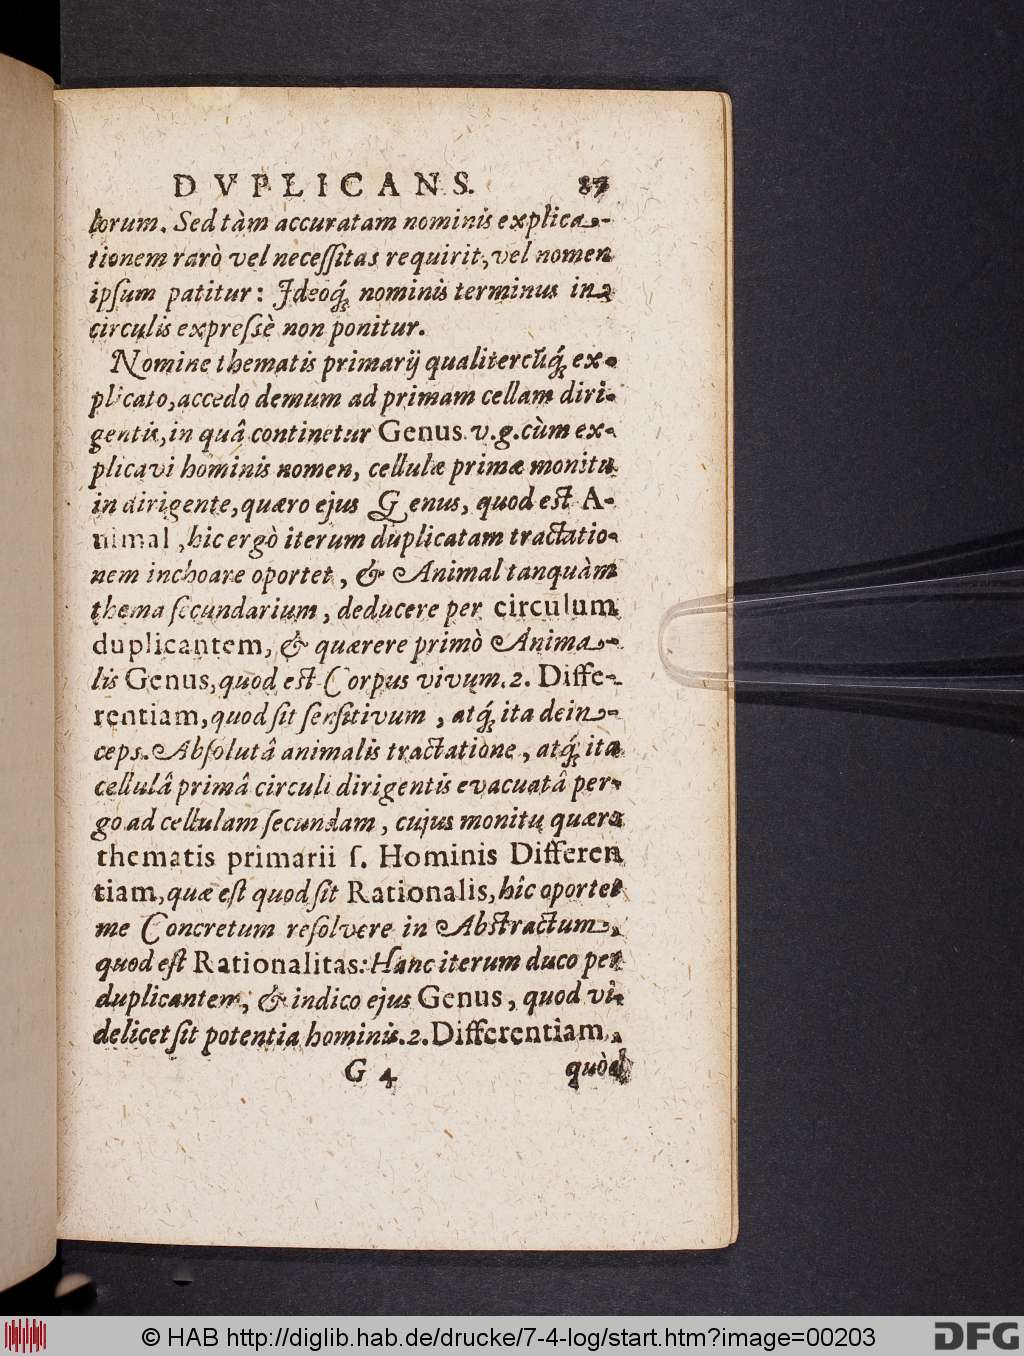 DVPLICANS. 87
lorum. Sed tàm accuratam nominis explica-
tionem rarò vel neceſſitas requirit, vel nomen
ipſum patitur: Ideoq́; nominis terminus in
circulis expreſsè non ponitur.
Nomine thematis primarij qualitercũq́; ex-
plicato, accedo demum ad primam cellam diri-
gentis, in quâ continetur Genus v.g. cùm ex-
plicavi hominis nomen, cellulæ primæ monitu
in dirigente, quæro ejus Genus, quod est A-
nimal, hic ergò iterum duplicatam tractatio-
nem inchoare oportet, & Animal tanquàm
thema ſecundarium, deducere per circulum
duplicantem, & quærere primò Anima-
lis Genus, quod est Corpus vivum. 2. Diffe-
rentiam, quod ſit ſenſitivum, atq́; ita dein-
ceps. Abſolutâ animalis tractatione, atq́; ita
cellulâ primâ circuli dirigentis evacuatâ per-
go ad cellulam ſecundam, cujus monitu quæro
thematis primarii ſ. Hominis Differen
tiam, quæ eſt quod ſit Rationalis, hîc oportet
me Concretum reſolvere in Abstractum,
quod eſt Rationalitas: Hanc iterum duco per
duplicantem, & indico ejus Genus, quod vi-
delicet ſit potentia hominis. 2. Differentiam,
G 4 quòd
© HAB http://diglib.hab.de/drucke/7-4-log/start.htm?image=00203
DFG